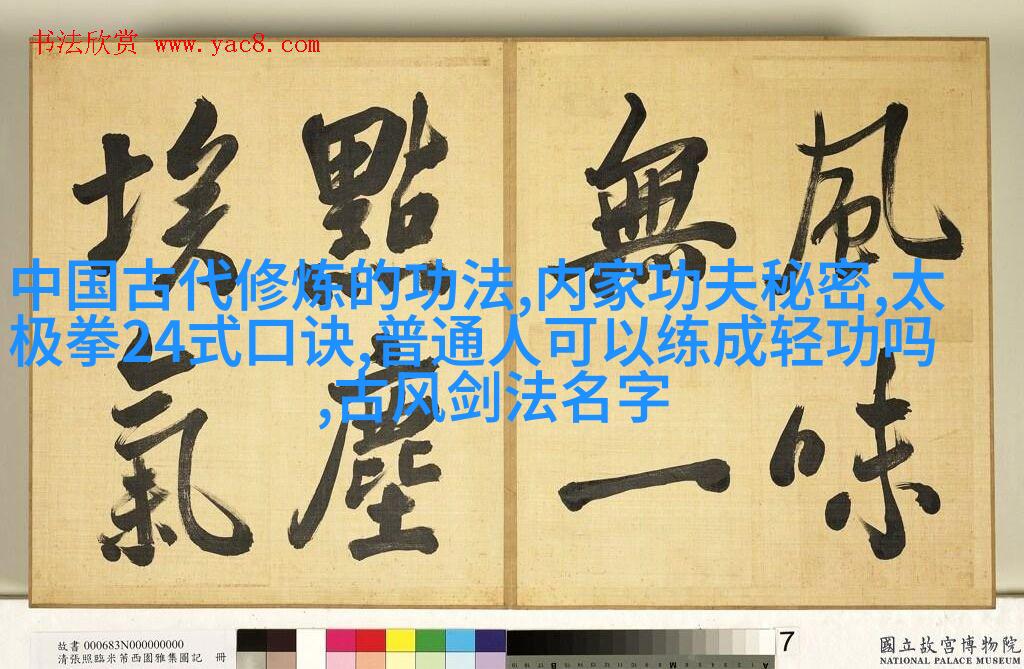 书法欣赏 www.yac8.com
風味
無一
點塵
埃氣
中国古代修炼的功法,内家功夫秘密,太
极拳24式口诀,普通人可以练成轻功吗
,古风剑法名字
故書 000683N000000000
清張照臨米芾西園雅集圖記 冊
7
國立故宮博物院
NATIONAL PALACE MUSEUM